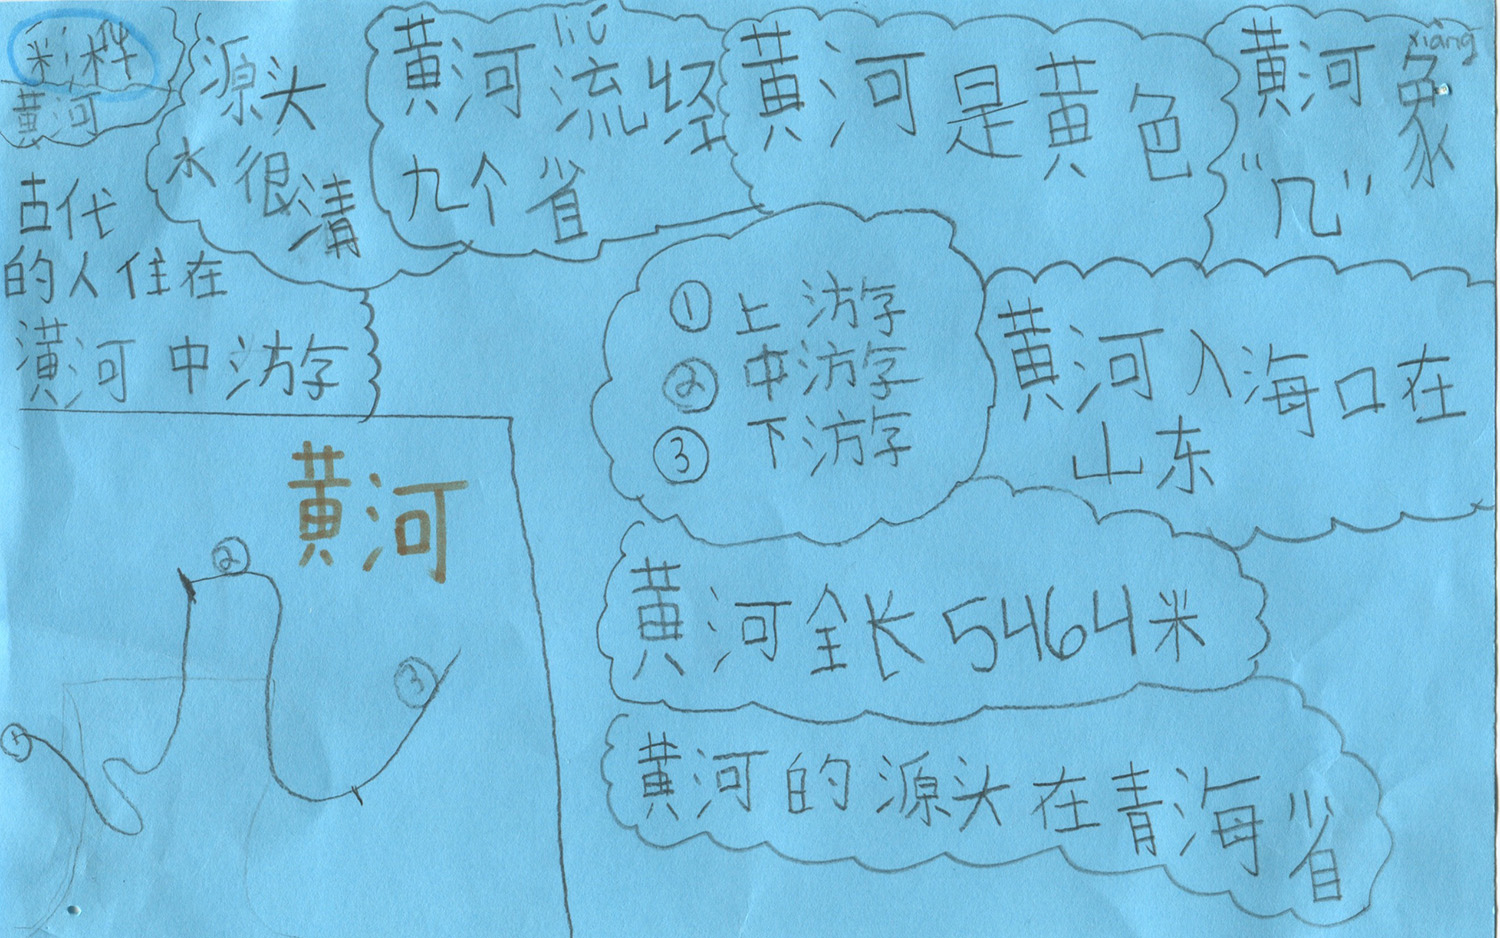 黄河
源头
水很清
liú
黄河流经
九个省
黄河是黄色
xiàng
黄河象
“几”
古代
的人住在
潢河中游
① 上游
② 中游
③ 下游
黄河入海口在
山东
黄河
②
③
①
黄河全长5464米
黄河的源头在青海省